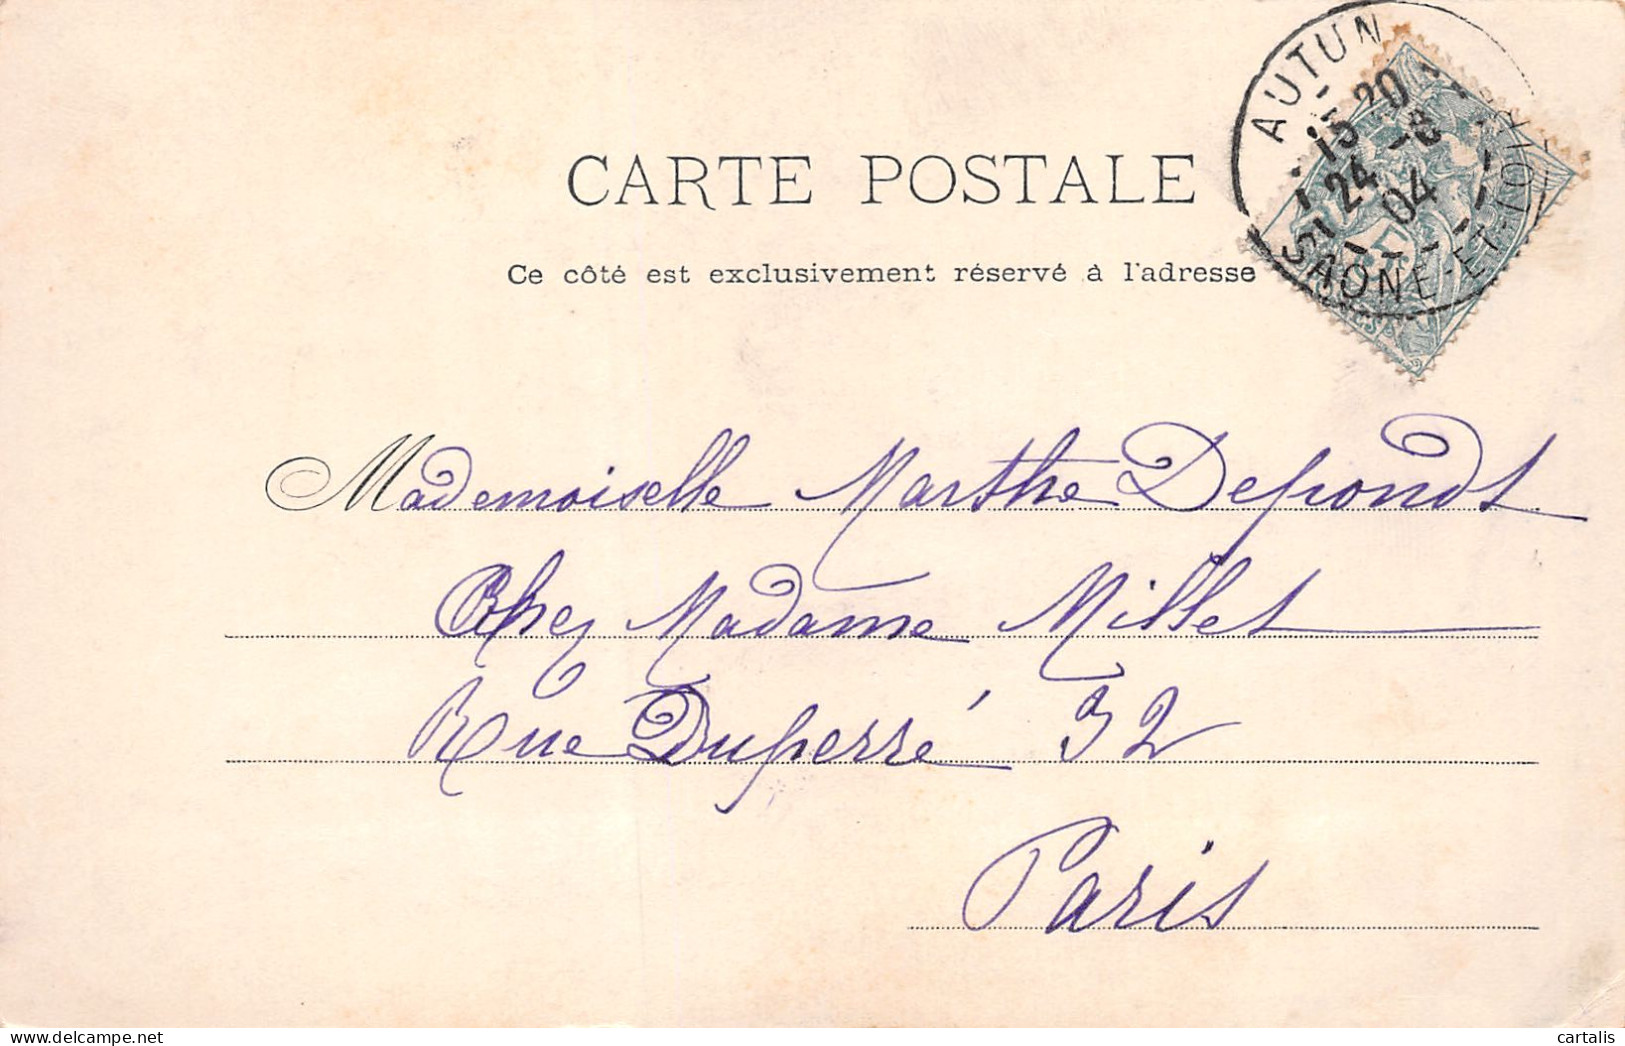 CARTE POSTALE
Ce côté est exclusivement réservé à l'adresse
AUTUN
15 20
24 -8
04
SAONE-ET-LOIRE
5
Mademoiselle Marthe Depondt
Chez Madame Millet
Rue Duperré 32
Paris
delcampe.net
cartalis